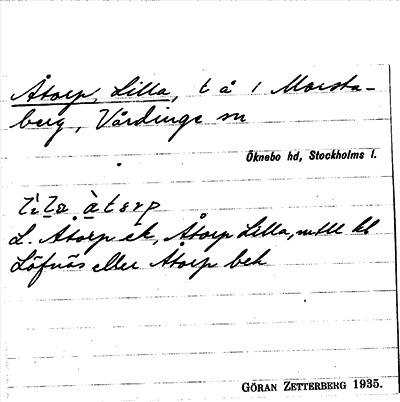 Åtorp, Lilla, t å 1 Morsta-
berg, Vårdinge sn
Öknebo hd, Stockholms l.
L. Åtorp ek, Åtorp Lilla, mtll kl
Löfnäs eller Åtorp bek
GÖRAN ZETTERBERG 1935.